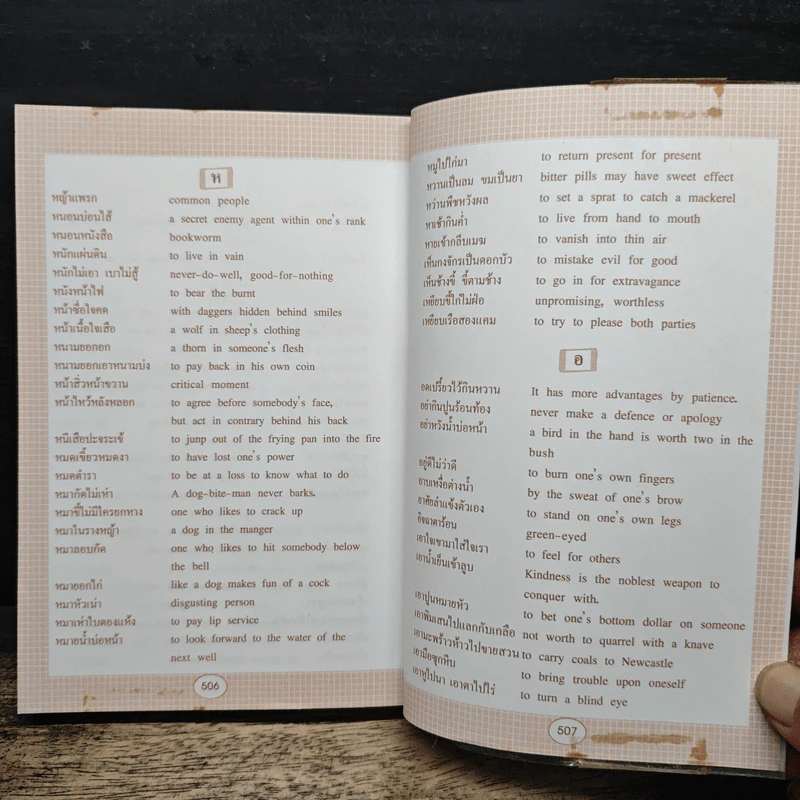 ห
หญ้าแพรก common people
หนอนบ่อนไส้ a secret enemy agent within one's rank
หนอนหนังสือ bookworm
หนักแผ่นดิน to live in vain
หนักไม่เอา เบาไม่สู้ never-do-well, good-for-nothing
หนังหน้าไฟ to bear the burnt
หน้าซื่อใจคด with daggers hidden behind smiles
หน้าเนื้อใจเสือ a wolf in sheep's clothing
หนามยอกอก a thorn in someone's flesh
หนามยอกเอาหนามบ่ง to pay back in his own coin
หน้าสิ่วหน้าขวาน critical moment
หน้าไหว้หลังหลอก to agree before somebody's face,
but act in contrary behind his back
หนีเสือปะจระเข้ to junp out of the frying pan into the fire
หมดเขี้ยวหมดงา to have lost one's power
หมดตำรา to be at a loss to know what to do
หมากัดไม่เห่า A dog-bite-man never barks.
หมาขี้ไม่มีใครยกหาง one who likes to crack up
หมาในรางหญ้า a dog in the manger
หมาลอบกัด one who likes to hit somebody below
the bell
หมายอกไก่ like a dog makes fun of a cock
หมาหัวเน่า disgusting person
หมาเห่าใบตองแห้ง to pay lip service
หมายน้ำบ่อหน้า to look forward to the water of the
next well
506
หมูไปไก่มา to return present for present
หวานเป็นลม ขมเป็นยา bitter pills may have sweet effect
หว่านพืชหวังผล to set a sprat to catch a mackerel
หาเช้ากินค่ำ to live from hand to mouth
หายเข้ากลีบเมฆ to vanish into thin air
เห็นกงจักรเป็นดอกบัว to mistake evil for good
เห็นช้างขี้ ขี้ตามช้าง to go in for extravagance
เหยียบขี้ไก่ไม่ฝ่อ unpromising, worthless
เหยียบเรือสองแคม to try to please both parties
อ
อดเปรี้ยวไว้กินหวาน It has more advantages by patience.
อย่ากินปูนร้อนท้อง never make a defence or apology
อย่าหวังน้ำบ่อหน้า a bird in the hand is worth two in the
bush
อยู่ดีไม่ว่าดี to burn one's own fingers
อาบเหงื่อต่างน้ำ by the sweat of one's brow
อาศัยลำแข้งตัวเอง to stand on one's own legs
อิจฉาตาร้อน green-eyed
เอาใจเขามาใส่ใจเรา to feel for others
เอาน้ำเย็นเข้าลูบ Kindness is the noblest weapon to
conquer with.
เอาปูนหมายหัว to bet one's bottom dollar on someone
เอาพิมเสนไปแลกกับเกลือ not worth to quarrel with a knave
เอามะพร้าวห้าวไปขายสวน to carry coals to Newcastle
เอามือซุกหีบ to bring trouble upon oneself
เอาหูไปนา เอาตาไปไร่ to turn a blind eye
507